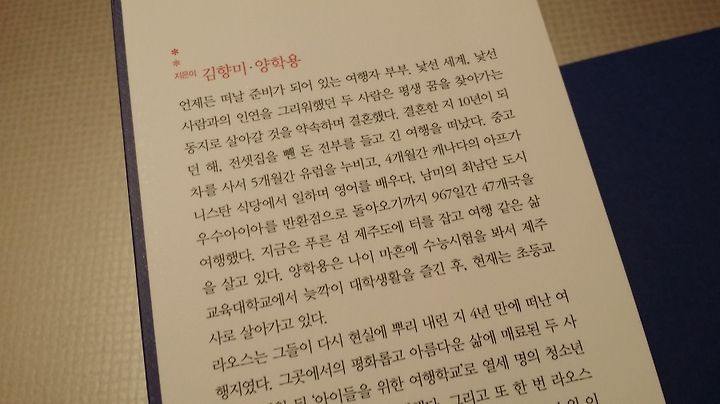 지은이 김향미·양학용
언제든 떠날 준비가 되어 있는 여행자 부부. 낯선 세계, 낯선
사람과의 인연을 그리워했던 두 사람은 평생 꿈을 찾아가는
동지로 살아갈 것을 약속하며 결혼했다. 결혼한 지 10년이 되
던 해, 전셋집을 뺀 돈 전부를 들고 긴 여행을 떠났다. 중고
차를 사서 5개월간 유럽을 누비고, 4개월간 캐나다의 아프가
니스탄 식당에서 일하며 영어를 배우다, 남미의 최남단 도시
우수아이아를 반환점으로 돌아오기까지 967일간 47개국을
여행했다. 지금은 푸른 섬 제주도에 터를 잡고 여행 같은 삶
을 살고 있다. 양학용은 나이 마흔에 수능시험을 봐서 제주
교육대학교에서 늦깎이 대학생활을 즐긴 후, 현재는 초등교
사로 살아가고 있다.
라오스는 그들이 다시 현실에 뿌리 내린 지 4년 만에 떠난 여
행지였다. 그곳에서의 평화롭고 아름다운 삶에 매료된 두 사
된 '아이들을 위한 여행학교'로 열세 명의 청소년
그리고 또 한 번 라오스